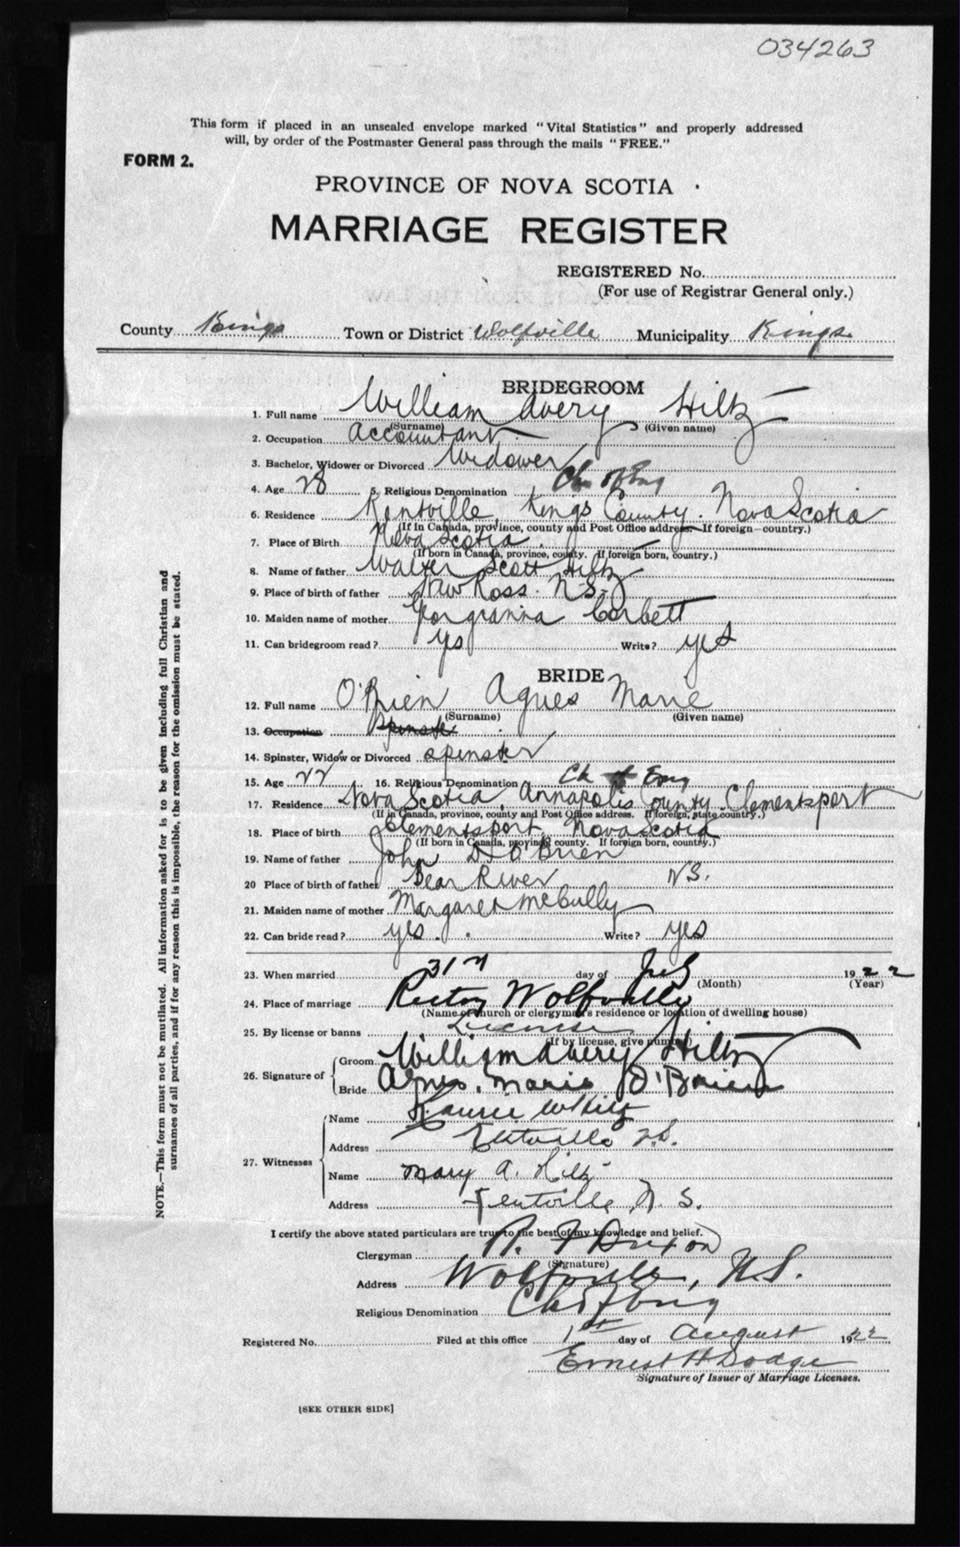 034263
This form if placed in an unsealed envelope marked "Vital Statistics" and properly addressed
will, by order of the Postmaster General pass through the mails "FREE."
FORM 2.
PROVINCE OF NOVA SCOTIA
MARRIAGE REGISTER
REGISTERED No.
(For use of Registrar General only.)
County Kings Town or District Wolfville Municipality Kings
BRIDEGROOM
1. Full name William Avery Hiltz
(Surname) (Given name)
2. Occupation accountant
3. Bachelor, Widower or Divorced Widower
4. Age 28 5. Religious Denomination Ch of Eng
6. Residence Kentville Kings County. Nova Scotia
(If in Canada, province, county and Post Office address. If foreign—country.)
7. Place of Birth Nova Scotia
(If born in Canada, province, county. If foreign born, country.)
8. Name of father Walter Scott Hiltz
9. Place of birth of father New Ross. N.S.
10. Maiden name of mother Georgianna Corbett
11. Can bridegroom read? yes Write? yes
BRIDE
12. Full name O'Brien Agnes Marie
(Surname) (Given name)
13. Occupation Spinster
14. Spinster, Widow or Divorced spinster
15. Age 22 16. Religious Denomination Ch of Eng
17. Residence Nova Scotia, Annapolis County Clementsport
(If in Canada, province, county and Post Office address. If foreign, state country.)
18. Place of birth Clementsport Nova Scotia
(If born in Canada, province, county. If foreign born, country.)
19. Name of father John D O'Brien
20 Place of birth of father Bear River N.S.
21. Maiden name of mother Margaret McCully
22. Can bride read? yes. Write? yes
23. When married 31st day of July 1922
(Month) (Year)
24. Place of marriage Rectory Wolfville
(Name of church or clergyman's residence or location of dwelling house)
25. By license or banns License
(If by license, give number)
26. Signature of
Groom William Avery Hiltz
Bride Agnes. Marie O'Brien
27. Witnesses
Name W Hiltz
Address Kentville N.S.
Name Mary A. Hiltz
Address Kentville, N.S.
I certify the above stated particulars are true to the best of my knowledge and belief.
Clergyman R. F Dixon
(Signature)
Address Wolfville, N.S.
Religious Denomination Ch of Eng
Registered No. Filed at this office 1st day of August 1922
Ernest H Dodge
Signature of Issuer of Marriage Licenses.
[SEE OTHER SIDE]
NOTE.—This form must not be mutilated. All information asked for is to be given including full Christian and
surnames of all parties, and if for any reason this is impossible, the reason for the omission must be stated.